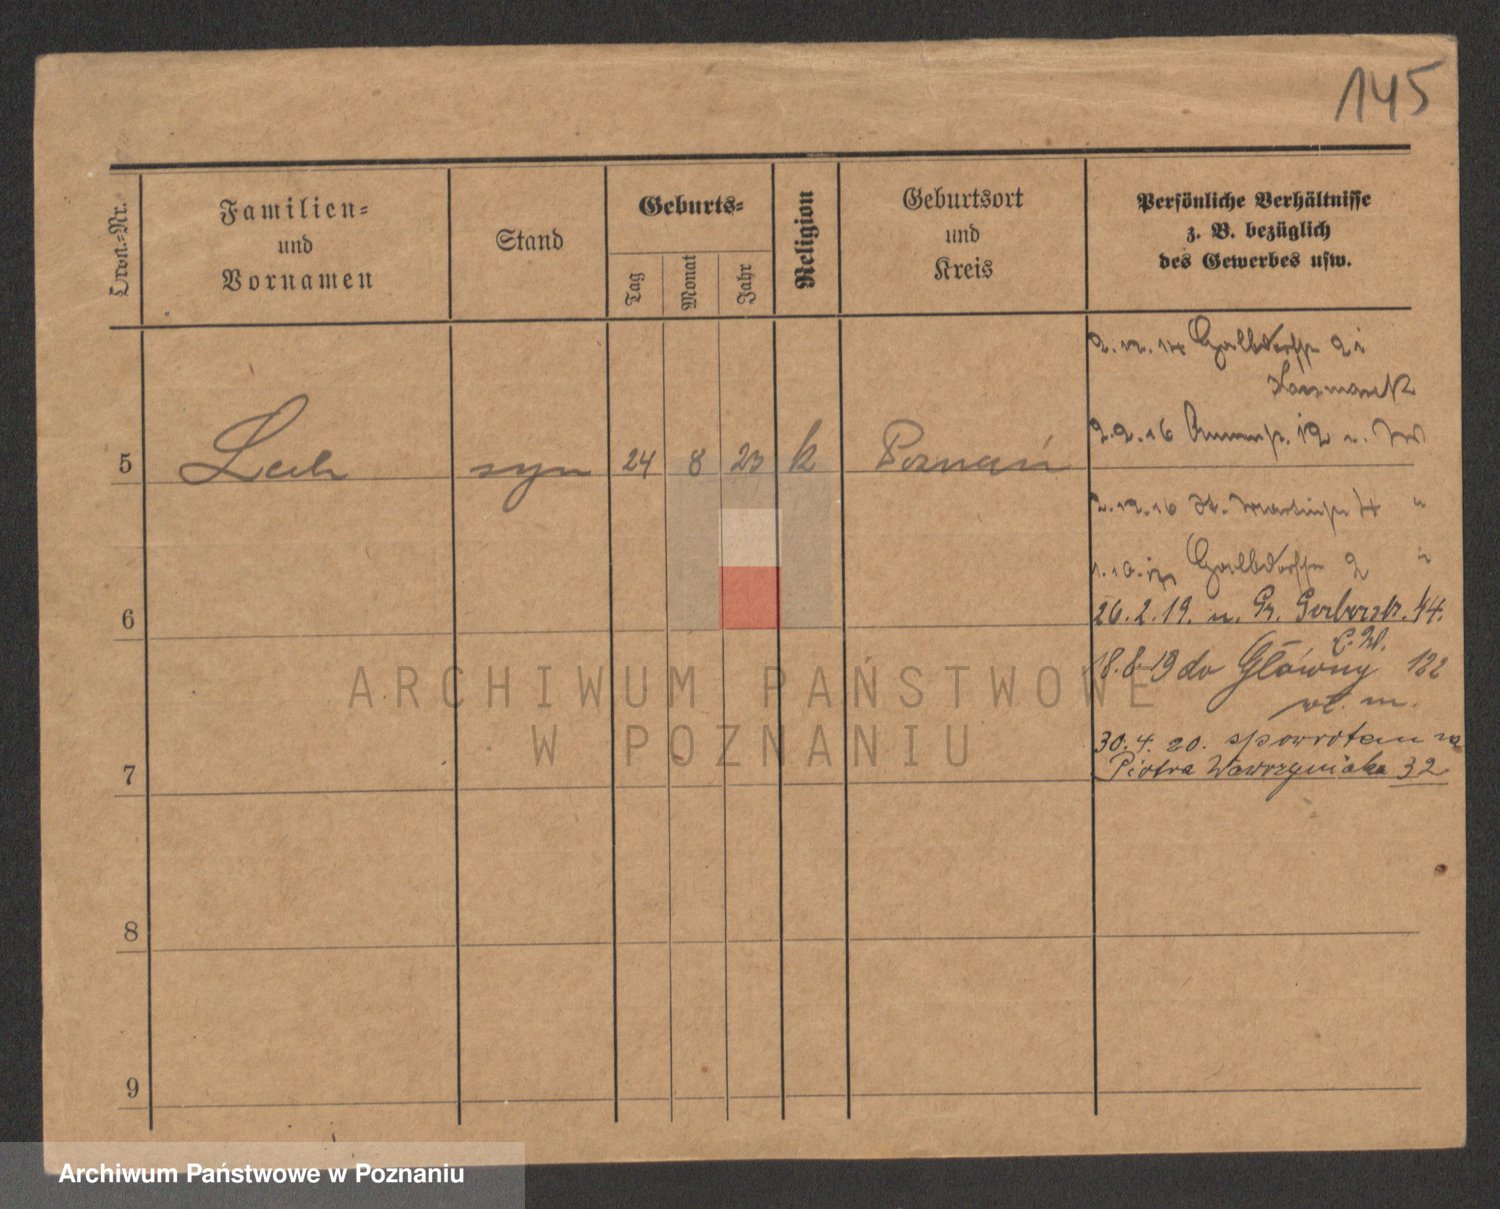 145
Ordn.-Nr.
Familien-
und
Vornamen
Stand
Geburts-
Tag
Monat
Jahr
Religion
Geburtsort
und
Kreis
Persönliche Verhältnisse
z. B. bezüglich
des Gewerbes usw.
5
Lech
syn
24
8
23
k
Poznań
2.12.14
2.2.16 12
2.12.16 St. Martinstr
26.2.19. n. Gr. Gerberstr. 44.
18.8.19 do Główny 122
30.4.20. spowrotem na
Piotra Wawrzyniaka 32
6
7
8
9
ARCHIWUM PAŃSTWOWE
W POZNANIU
Archiwum Państwowe w Poznaniu